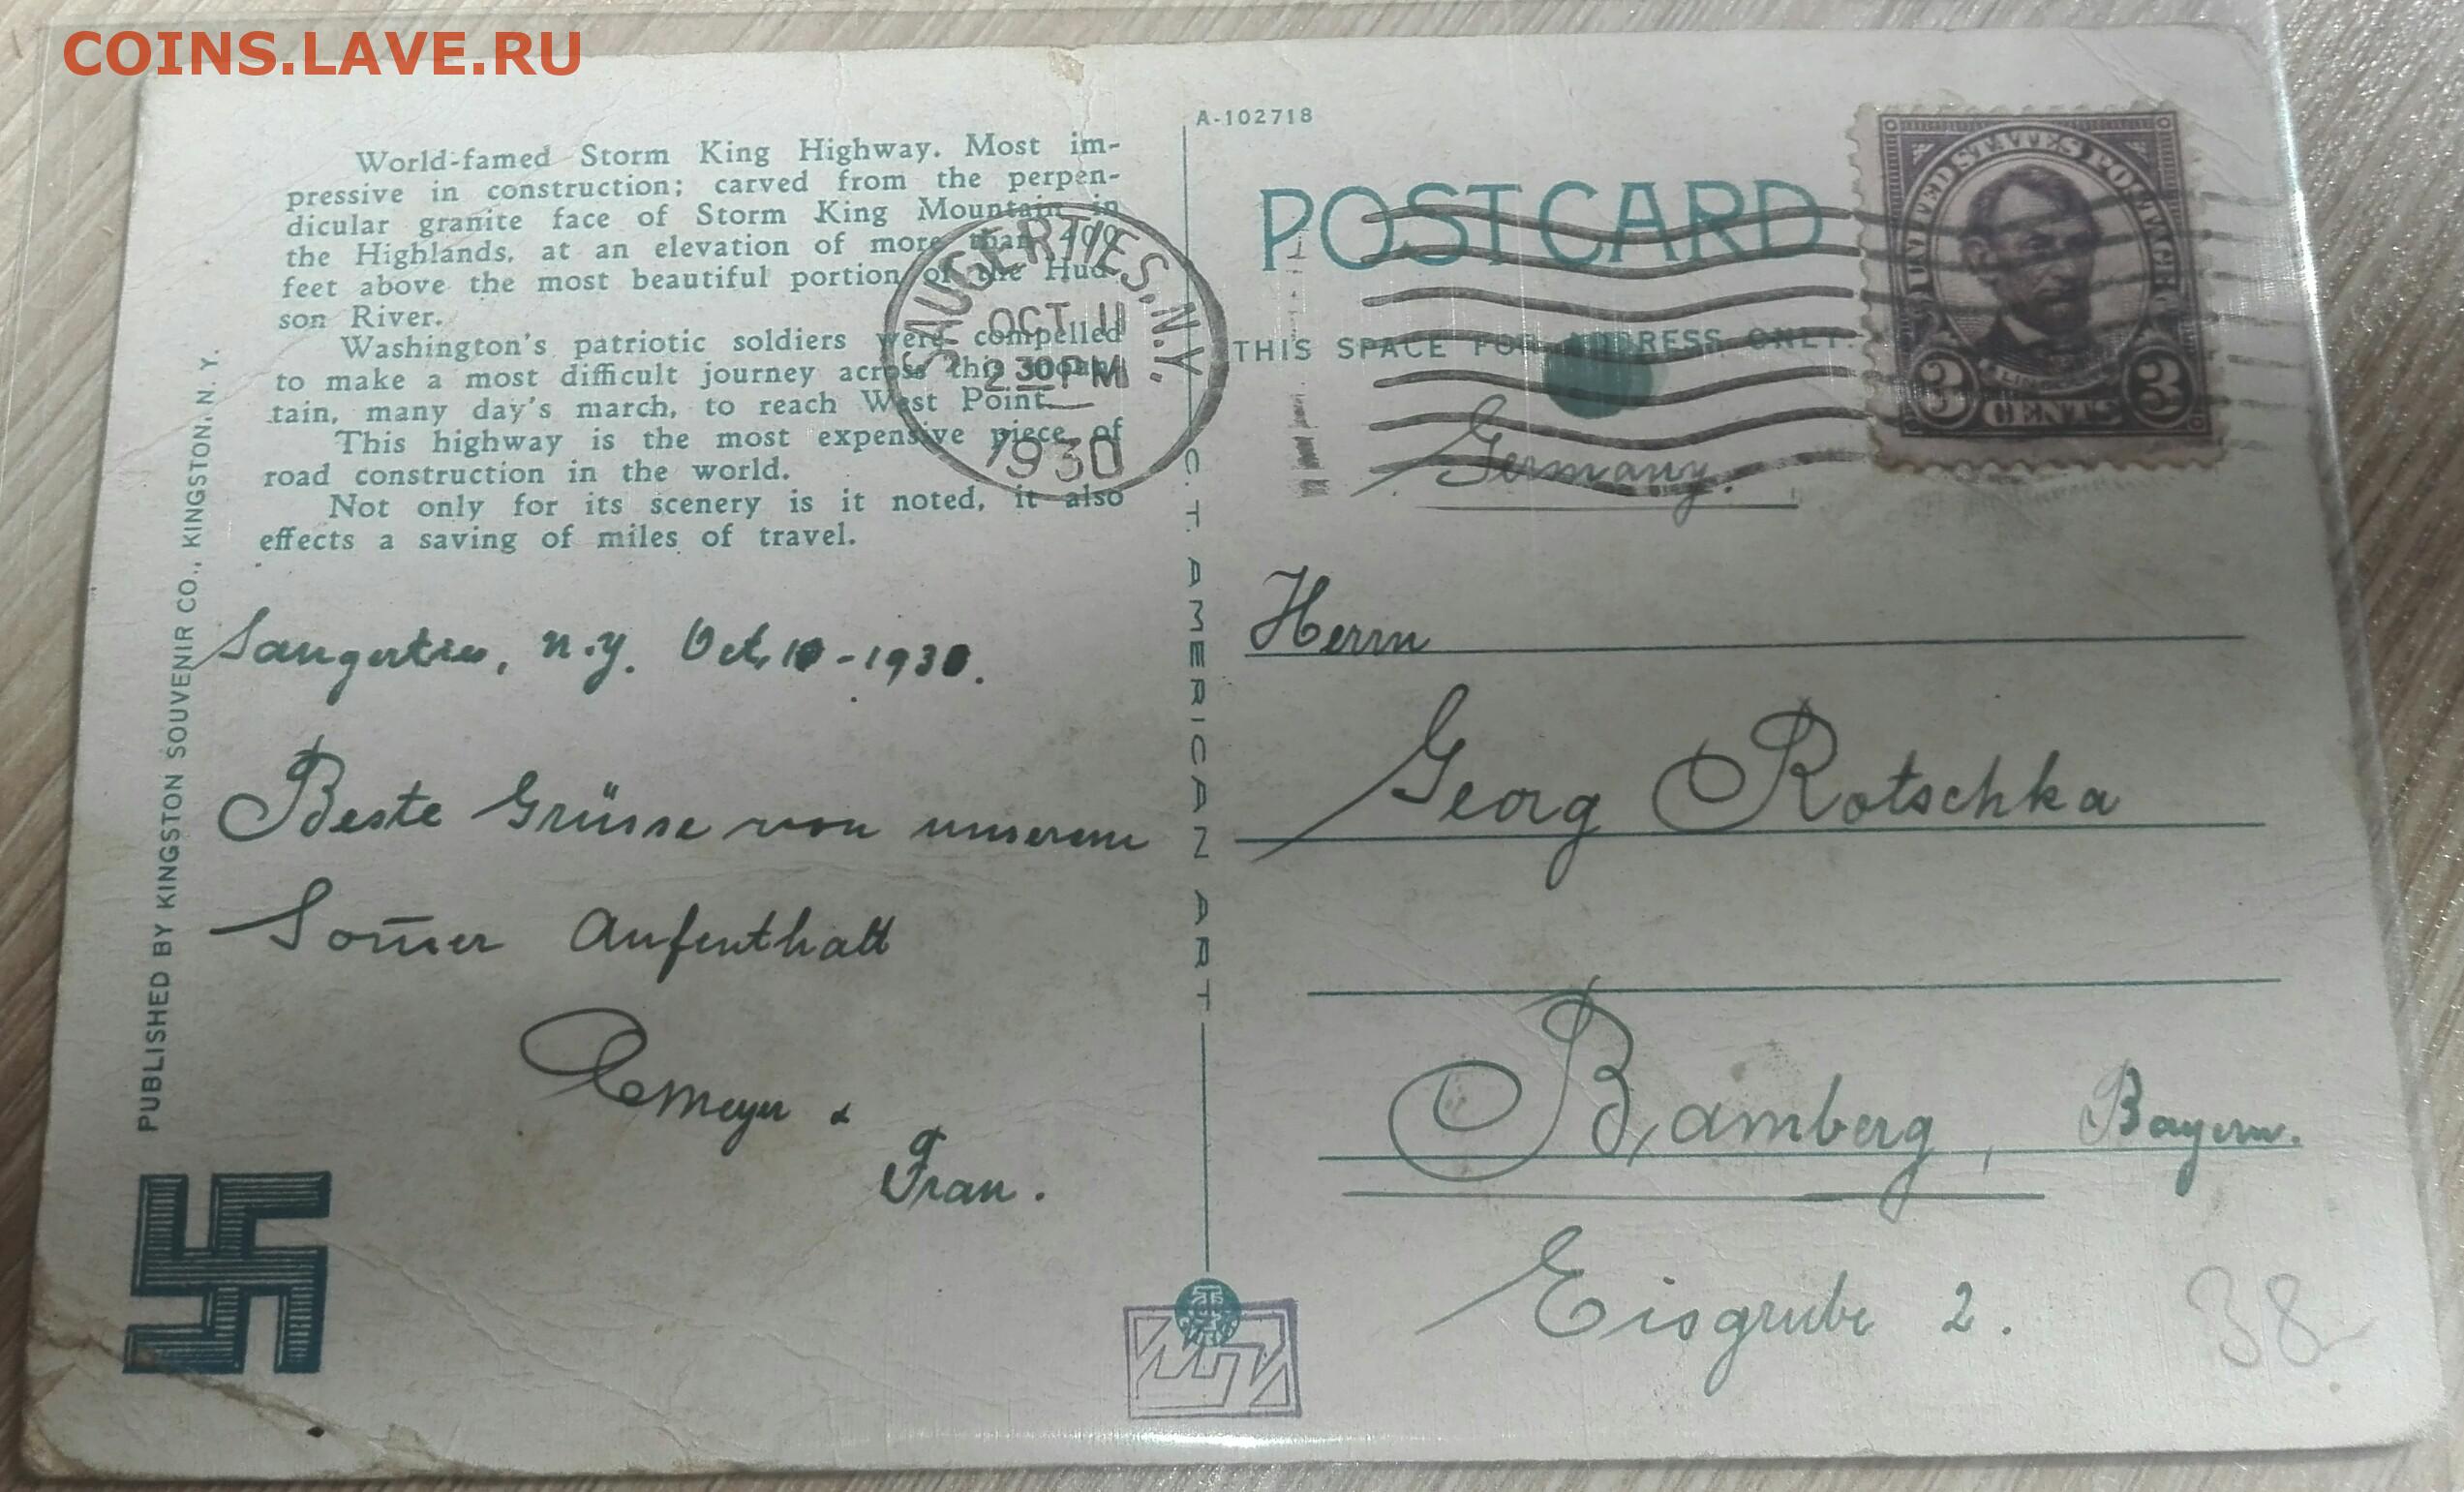 COINS.LAVE.RU
World-famed Storm King Highway. Most im-
pressive in construction; carved from the perpen-
dicular granite face of Storm King Mountain in
the Highlands, at an elevation of more than 400
feet above the most beautiful portion of the Hud-
son River.
Washington's patriotic soldiers were compelled
to make a most difficult journey across this moun-
tain, many day's march, to reach West Point.
This highway is the most expensive piece of
road construction in the world.
Not only for its scenery is it noted, it also
effects a saving of miles of travel.
PUBLISHED BY KINGSTON SOUVENIR CO., KINGSTON, N. Y.
SAUGERTIES, N.Y.
OCT 11
2 30 PM
1930
Saugerties, N.Y. Oct. 10 - 1930.
Beste Grüsse von unserem
Som̅er Aufenthalt
Meyer &
Frau.
C. T. AMERICAN ART
A-102718
POST CARD
THIS SPACE FOR ADDRESS ONLY.
UNITED STATES POSTAGE
LINCOLN
3 CENTS 3
Germany.
Herrn
Georg Rotschka
Bamberg, Bayern.
Eisgrube 2.
38